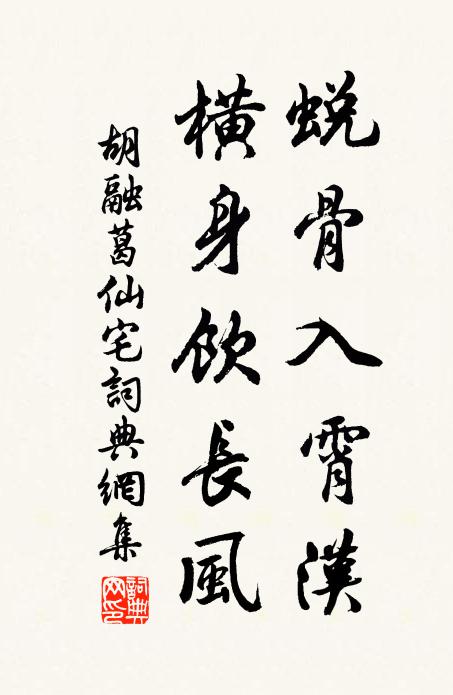 蜕骨入霄漢
橫身飲長風
胡融葛仙宅詞典網集
詞典網印